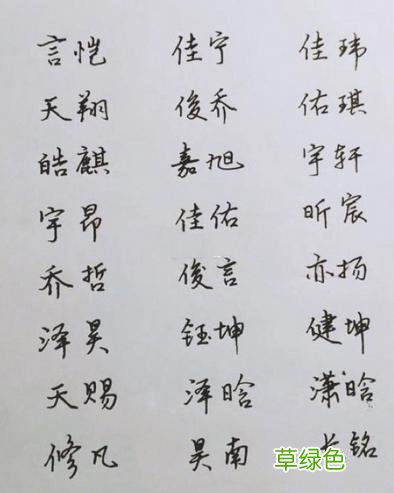 言恺 佳宁 佳玮
天翔 俊乔 佑琪
皓麒 嘉旭 宇轩
宇昂 佳佑 昕宸
乔哲 俊言 亦扬
泽昊 钰坤 健坤
天赐 泽晗 潇晗
修凡 昊南 铭
草绿色